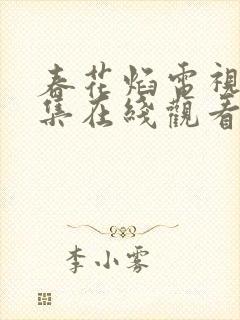 春花焰電視
集在綫觀看
李小雾